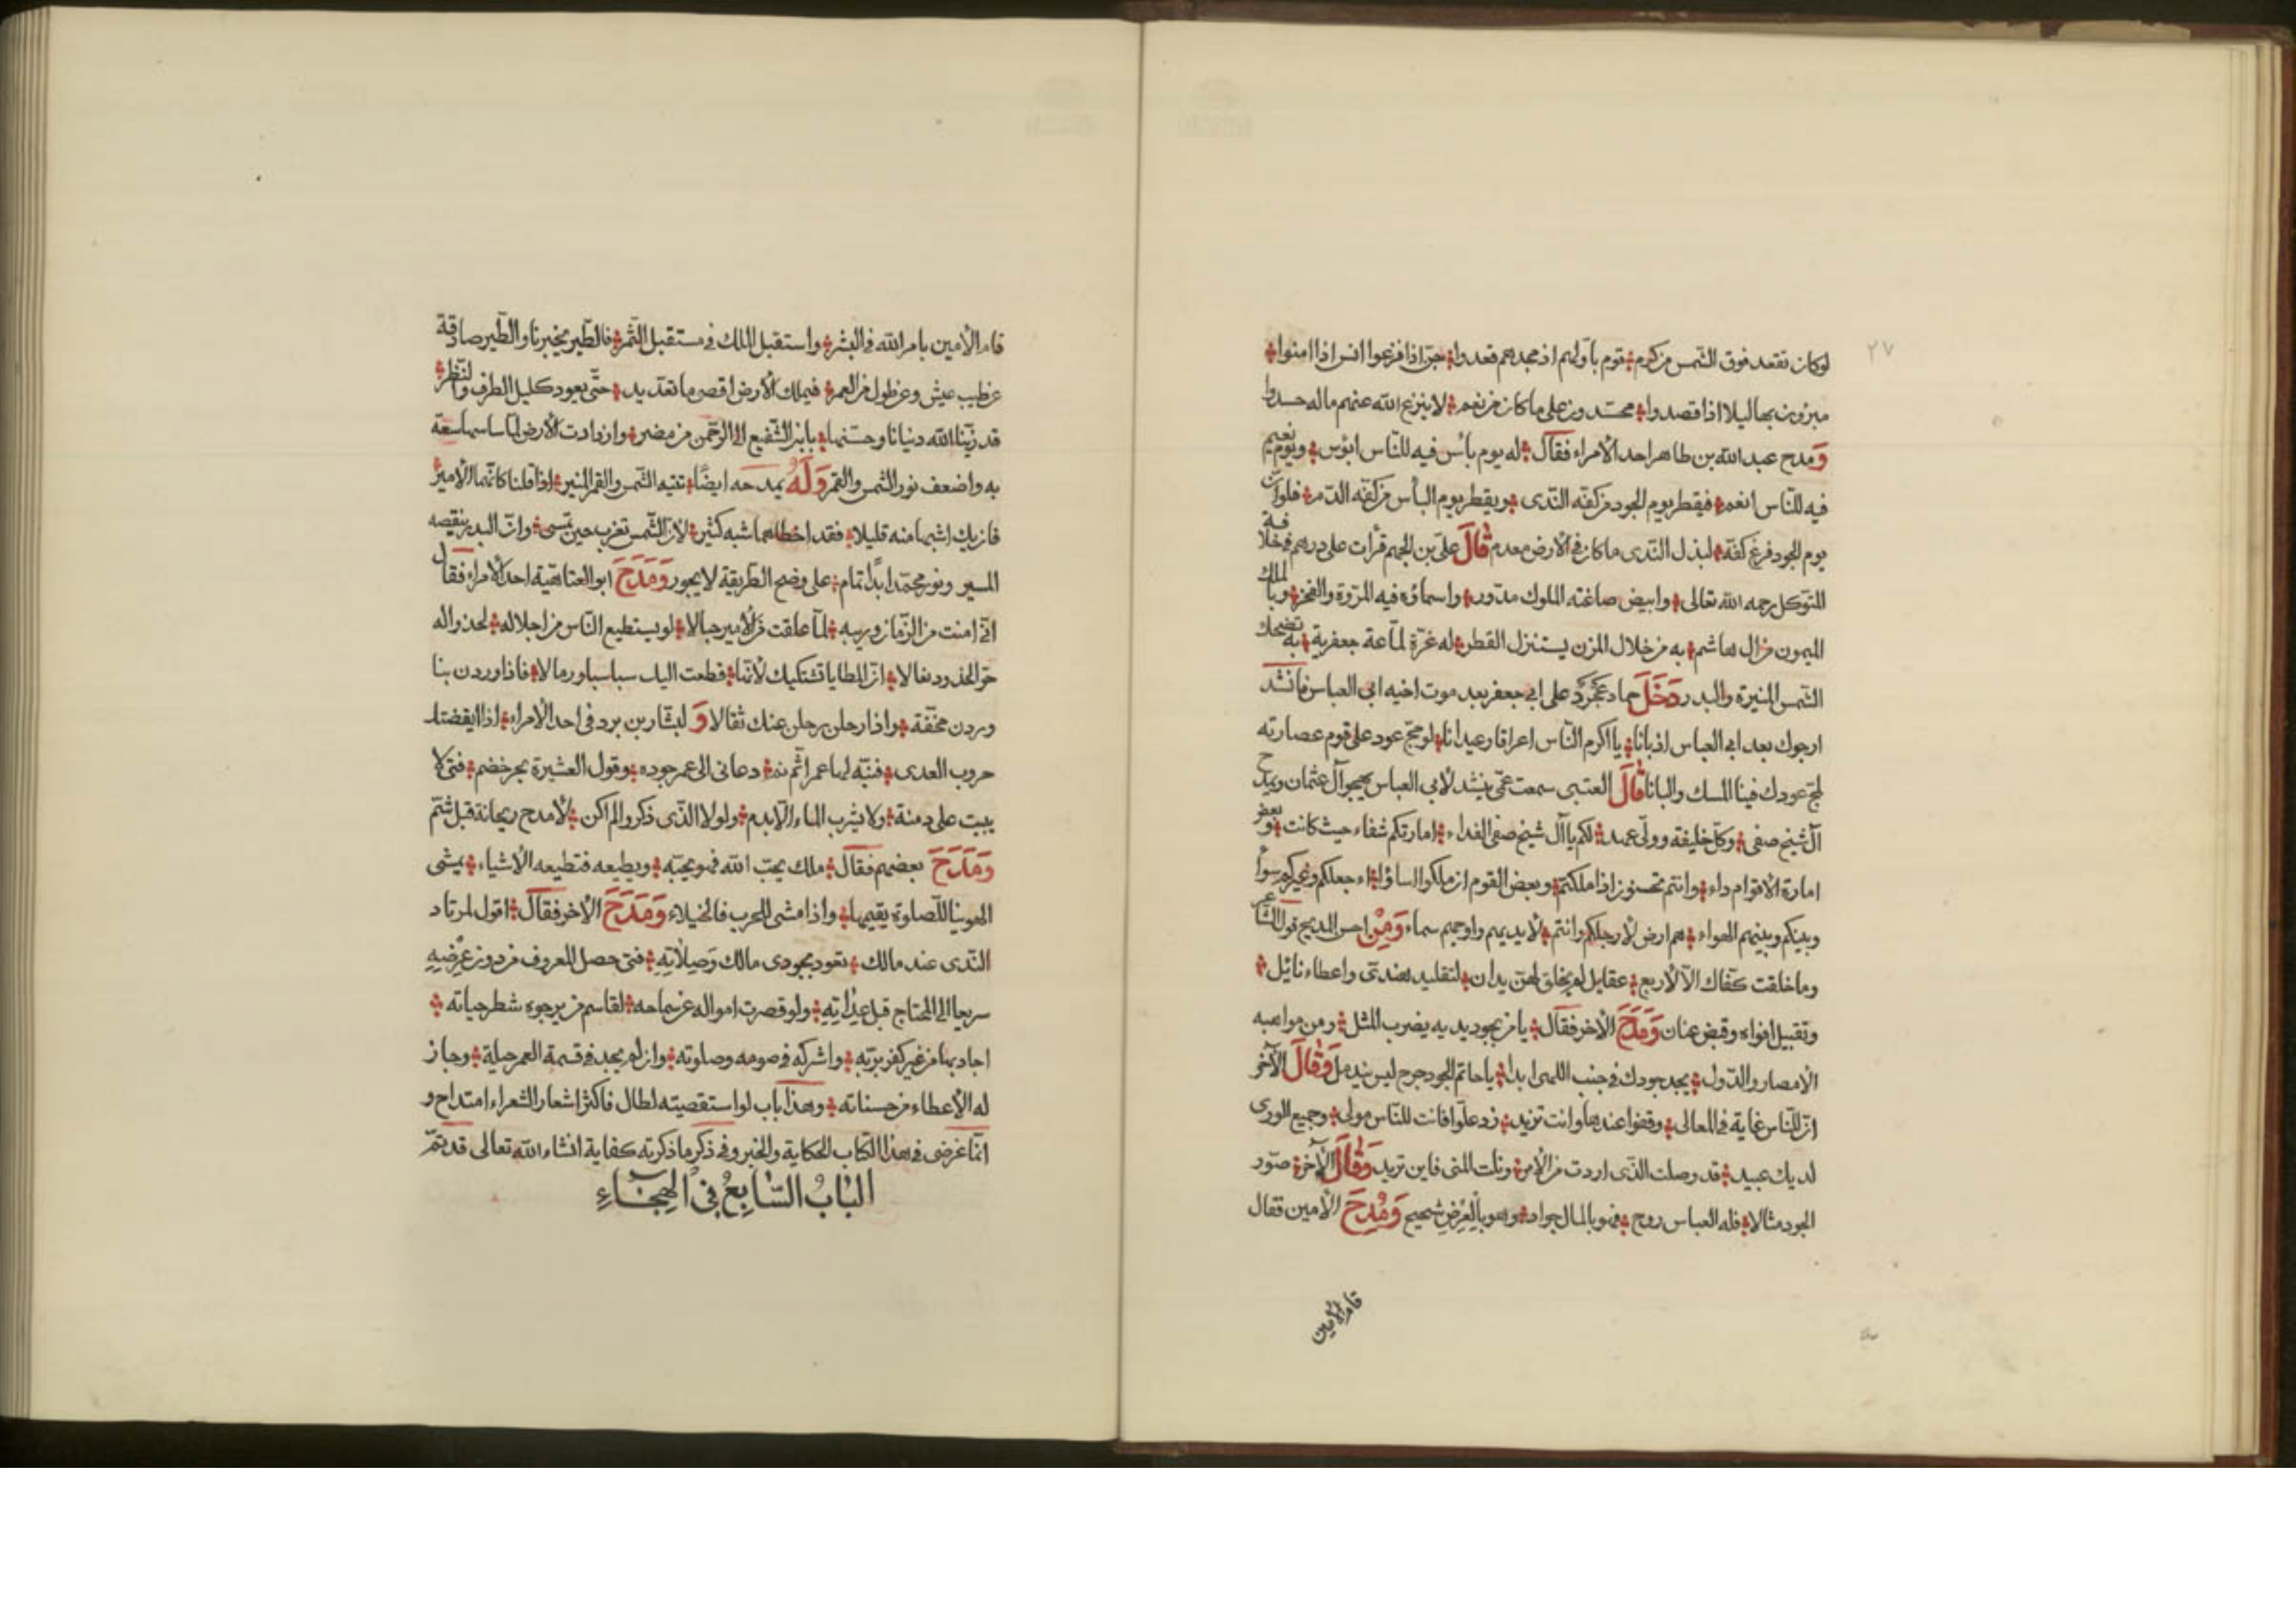 ٢٧
لو كان تقعد فوق الشمس من كرم قوم باولهم اذ مجدهم قعدوا جن اذا فزعوا انس اذا امنوا
مبرزون بهاليلا اذا قصدوا محسّدون على ما كان من نعم لا ينزع الله عنهم ماله حسدوا
وَمدح عبد الله بن طاهر احد الأمراء فقال له يوم بأس فيه للناس ابؤس ويوم نعيم
فيه للنّاس انعم فيقطر يوم الجود من كفّه النّدى ويقطر يوم البأس من كفّه الدّم فلو ان
يوم الجود فرغ كفّه لبذل النّدى ما كان في الأرض معدم قَالَ علي بن الجهم قرأت على درهم في خلافة
المتوكل رحمه الله تعالى وابيض صاغته الملوك مدور واسماؤه فيه المروة والفخر وبالملك
الميمون من ال هاشم به من خلال المزن يستنزل القطر له غرّة لمّاعة جعفرية به تضحك
الشمس المنيرة والبدر دَخَلَ حماد عَجْرَد على ابي جعفر بعد موت اخيه ابي العباس فانشد
ارجوك بعد ابي العباس اذ بانا يا اكرم النّاس اعراقا وعيدانا لو مجّ عود على قوم عصارته
لمجّ عودك فينا المسك والبانا قَالَ العتبى سمعت عمّى ينشد لأبي العباس يهجو آل عثمان ويمدح
آل شيخ صفى وكلّ خليفة وولّى عهد لكم يا آل شيخ صفى الفداء امارتكم شفاء حيث كانت وبعض
امارة الأقوام داء وانتم تحسنون اذا ملكتم وبعض القوم ان ملكوا اساؤا اءجعلكم وغيركم سواء
وبينكم وبينهم الهواء هم ارض لأرجلكم وانتم لأيديهم واوجههم سماء وَمِنْ احسن المديح قول الشاعر
وما خلقت كفّاك الّا لأربع عقايل لم يخلق لهنّ يدان لتقليد هندىّ واعطاء نائل
وتقبيل افواه وقبض عنان وَمَدَحَ الأخر فقال يا من بجود يديه يضرب المثل ومن مواهبه
الأمصار والدّول يجد جودك في جنب اللهى ابدا يا حاتم الجود جرح ليس يندمل وَقَالَ الآخر
انّ للنّاس غاية في المعالى وقفوا عندها وانت تزيد زد علّوا فانت للنّاس مولى وجميع الورى
لديك عبيد قد وصلت الذّى اردت من الأمر ونلت المنى فاين تريد وَقَالَ الآخر صوّر
الجود مثالا فله العباس روح فهو بالمال جواد وهو بالعِرْضِ شحيح وَمُدِحَ الأمين فقال
قام الأمين
قام الأمين بامر الله في البشر واستقبل الملك في مستقبل الثّمر فالطّير يخبرنا والطّير صادقة
عن طيب عيش وعن طول من العمر فيملك الأرض اقصى ما تعدّ يد حتّى يعود كليل الطرف والنّظر
قد زيّنا الله دنيانا وحسّنها بابن الشّفيع الى الرّحمن من مضر وازدادت الأرض لمّا ساسها سعة
به واضعف نور الشمس والقمر وَلَهُ يمدحه ايضًا تتيه الشّمس والقمر المنير اذا قلنا كانّهما الأمير
فان يك اشبها منه قليلا فقد اخطاهما شبه كثير لأنّ الشّمس تغرب حين تمسى وانّ البدر ينقصه
المسير ونور محمّد ابدًا تمام على وضح الطّريقة لا يجور وَمَدَحَ ابو العتاهية احد الأمراء فقال
انّى امنت من الزّمان وريبه لمّا علقت من الأمير حبالا لو يستطيع النّاس من اجلاله لحذوا له
حرّ الخدود نعالا انّ المطايا تشتكيك لأنّها قطعت اليك سباسبا ورمالا فاذا وردن بنا
وردن مخفّة واذا رحلن رحلن عنك ثقالا وَ لبشّار بن برد في احد الأمراء اذا ايقضتك
حروب العدى فنبّه لها عمرا ثم نم دعانى الى عمر جوده وقول العشيرة بحر خضم فتى لا
يبيت على دمنة ولا يشرب الماء الّا بدم ولولا الذّى ذكروا لم اكن لأمدح ريحانة قبل شمّ
وَمَدَحَ بعضهم فقال ملك يحبّ الله فهو يحبّه ويطيعه فتطيعه الأشياء يمشى
الهوينا للصلوة يقيمها واذا مشى للحرب فالخيلاء وَمَدَحَ الأخر فقال اقول لمرتاد
النّدى عند مالك تعود بجودى مالك وَصِلَاتِهِ فتى حصل المعروف من دون عِرْضِهِ
سريعا الى المحتاج قبل عِدَاتِهِ ولو قصرت امواله عن سماحه لقاسم من يرجوه شطر حياته
اجاد بها من غير كفر بربّه واشركه في صومه وصلوته وان لم يجد في قسمة العمر حيلة وجاز
له الأعطاء من حسناته وهذا باب لو استقصيته لطال فاكثر اشعار الشعراء امتداح و
انّما غرضى في هذا الكتاب الحكاية والخبر وفي ذكر ما ذكرته كفاية انشاء الله تعالى قد يتمّ
الْبَابُ السَّابِعُ فِي الْهِجَاءِ